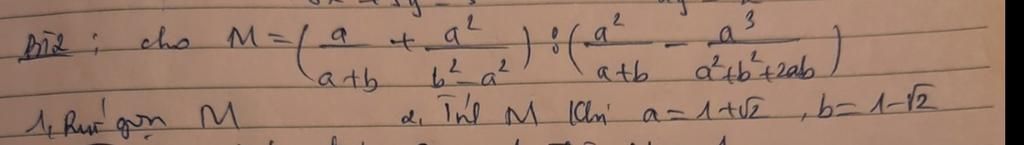 Bài 2 : cho M = (a/(a+b) + a²/(b²-a²)) : (a²/(a+b) - a³/(a²+b²+2ab))
1, Rút gọn M 2, Tính M khi a = 1+√2 , b = 1-√2